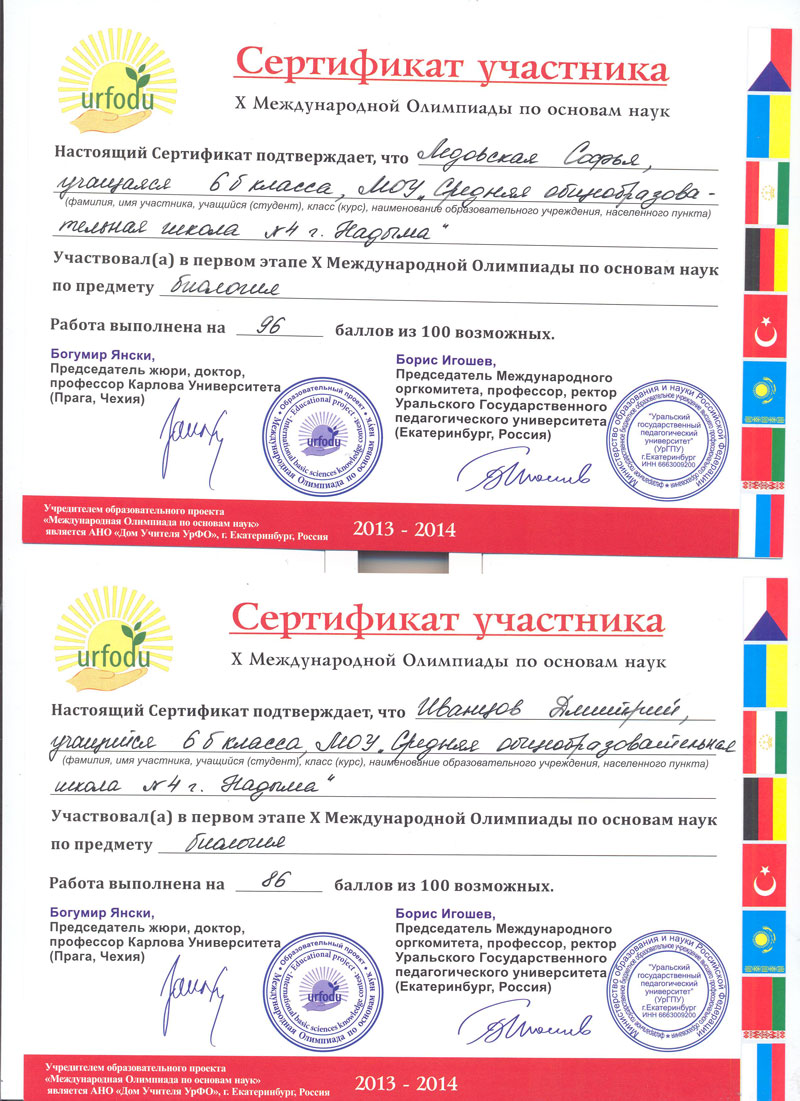 urfodu
Сертификат участника
X Международной Олимпиады по основам наук
Настоящий Сертификат подтверждает, что Ледовская Софья,
учащаяся 6 б класса, МОУ „Средняя общеобразова-
(фамилия, имя участника, учащийся (студент), класс (курс), наименование образовательного учреждения, населенного пункта)
тельная школа №4 г. Надыма"
Участвовал(а) в первом этапе X Международной Олимпиады по основам наук
по предмету биология
Работа выполнена на 96 баллов из 100 возможных.
Богумир Янски,
Председатель жюри, доктор,
профессор Карлова Университета
(Прага, Чехия)
Образовательный проект
Международная Олимпиада по основам наук
Educational project
International basic sciences knowledge contest
urfodu
Борис Игошев,
Председатель Международного
оргкомитета, профессор, ректор
Уральского Государственного
педагогического университета
(Екатеринбург, Россия)
Министерство образования и науки Российской Федерации
"Уральский
государственный
педагогический
университет"
(УрГПУ)
г.Екатеринбург
ИНН 6663009200
Учредителем образовательного проекта
«Международная Олимпиада по основам наук»
является АНО «Дом Учителя УрФО», г. Екатеринбург, Россия
2013 - 2014
urfodu
Сертификат участника
X Международной Олимпиады по основам наук
Настоящий Сертификат подтверждает, что Иванцов Дмитрий,
учащийся 6 б класса, МОУ „Средняя общеобразовательная
(фамилия, имя участника, учащийся (студент), класс (курс), наименование образовательного учреждения, населенного пункта)
школа №4 г. Надыма"
Участвовал(а) в первом этапе X Международной Олимпиады по основам наук
по предмету биология
Работа выполнена на 86 баллов из 100 возможных.
Богумир Янски,
Председатель жюри, доктор,
профессор Карлова Университета
(Прага, Чехия)
Образовательный проект
Международная Олимпиада по основам наук
Educational project
International basic sciences knowledge contest
urfodu
Борис Игошев,
Председатель Международного
оргкомитета, профессор, ректор
Уральского Государственного
педагогического университета
(Екатеринбург, Россия)
Министерство образования и науки Российской Федерации
"Уральский
государственный
педагогический
университет"
(УрГПУ)
г.Екатеринбург
ИНН 6663009200
Учредителем образовательного проекта
«Международная Олимпиада по основам наук»
является АНО «Дом Учителя УрФО», г. Екатеринбург, Россия
2013 - 2014